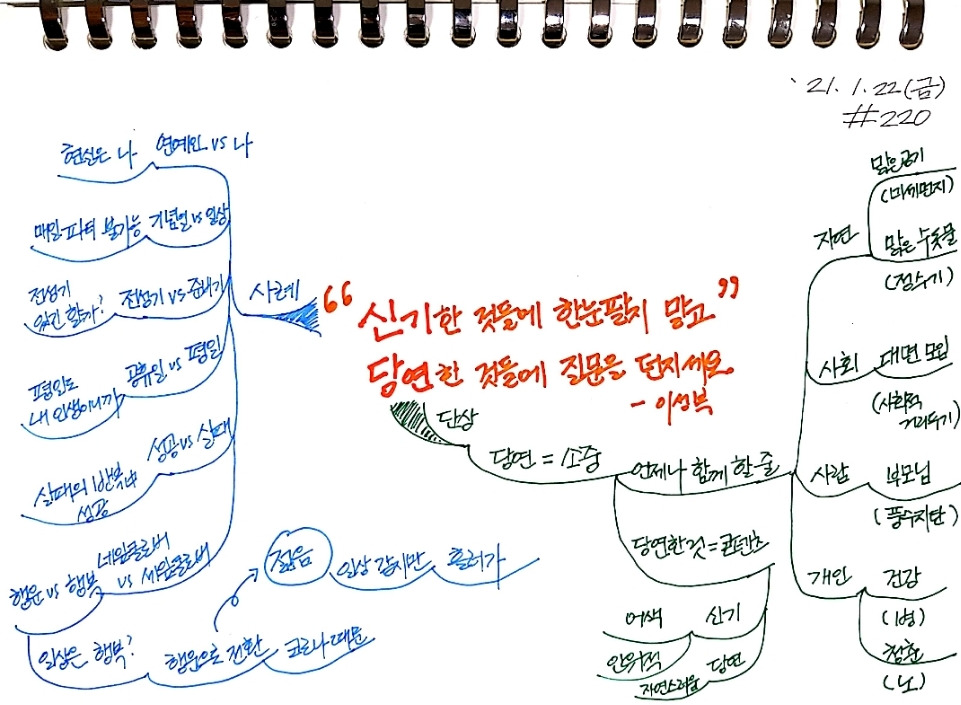 '21. 1. 22 (금)
#220
“신기한 것들에 한눈팔지 말고”
당연한 것들에 질문을 던지세요
- 이성복
사례
연예인 vs 나
현실은 나
기념일 vs 일상
매일 파티 불가능
전성기 vs 준비기
전성기
있긴 할까?
공휴일 vs 평일
평일도
내 인생이니까
성공 vs 실패
실패의 반복
성공
네잎클로버
vs 세잎클로버
행운 vs 행복
일상은 행복?
행운으로 전환
코로나 때문
젊음
일상 같지만
흘러가
단상
당연 = 소중
언제나 함께 할 줄
자연
맑은 공기
(미세먼지)
맑은 수돗물
(정수기)
사회
대면 모임
(사회적
거리두기)
사람
부모님
(풍수지탄)
개인
건강
(병)
청춘
(노)
당연한 것 = 콘텐츠
신기
어색
인위적
당연
자연스러움